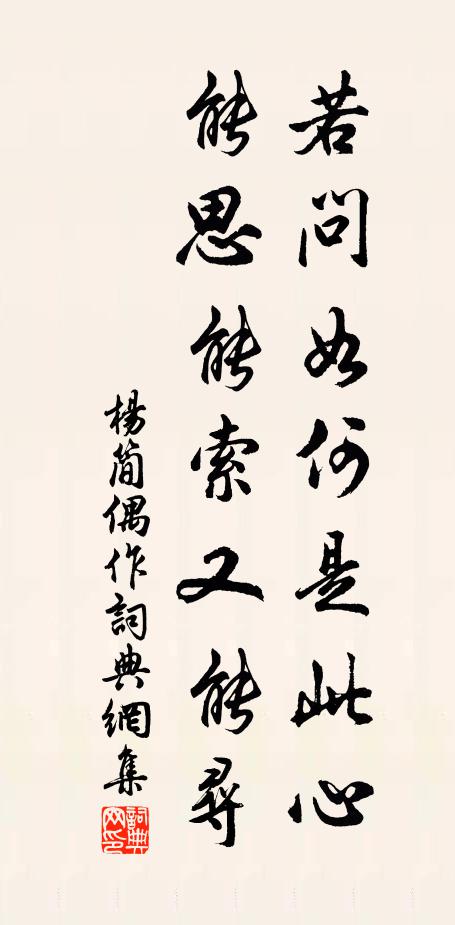 若問如何是此心
能思能索又能尋
楊簡偶作詞典網集
詞典網印